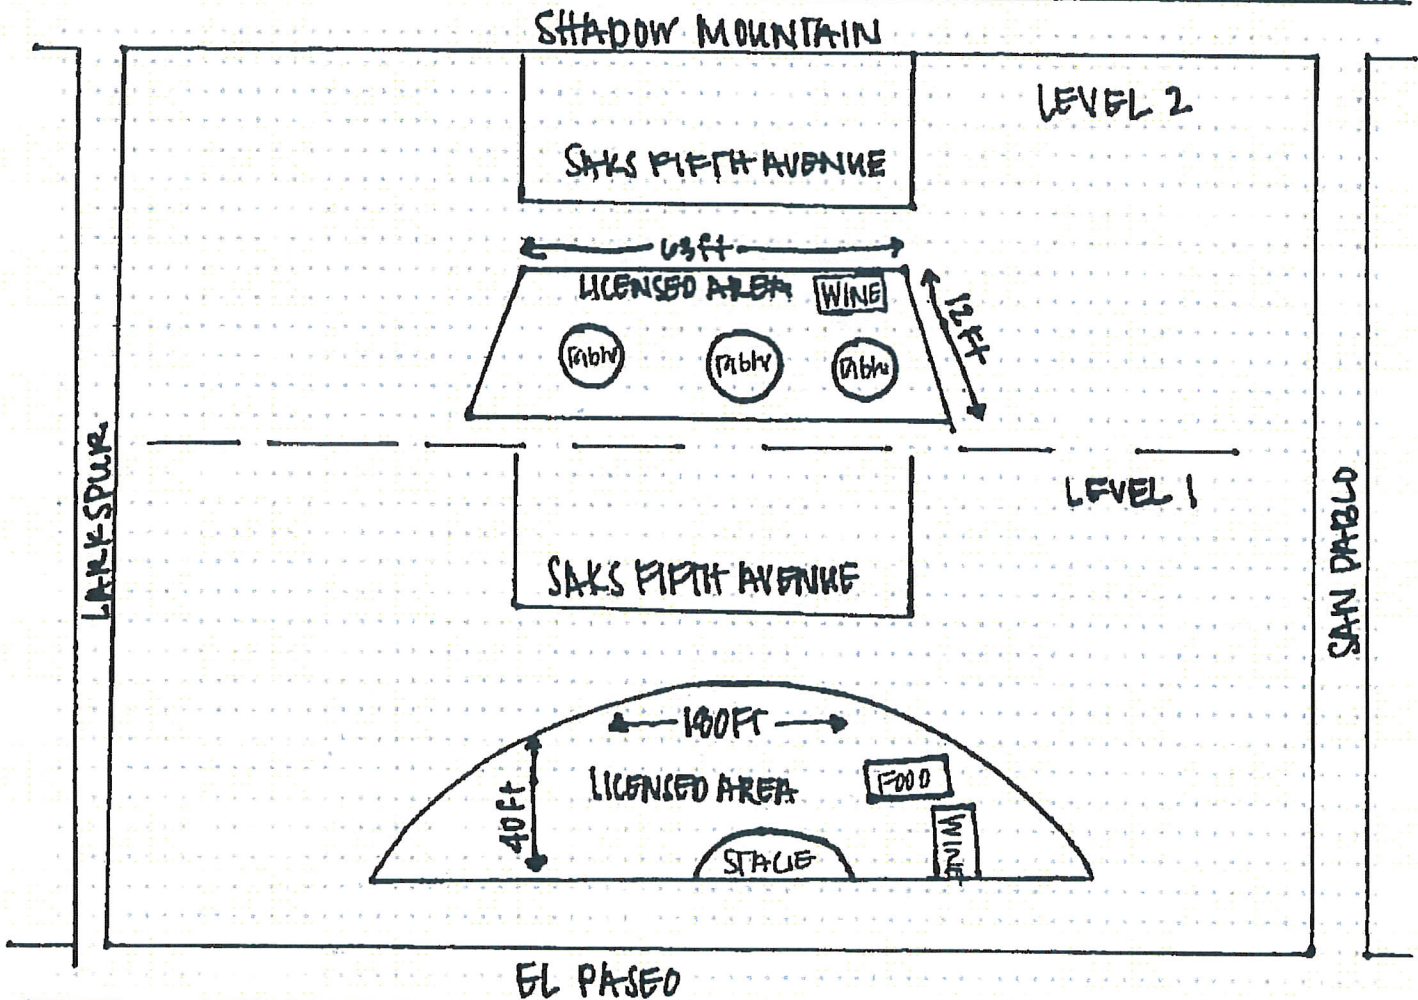 SHADOW MOUNTAIN
LEVEL 2
SAKS FIFTH AVENUE
63ft
LICENSED AREA
WINE
12ft
Table
Table
Table
LEVEL 1
LARKSPUR
SAN PABLO
SAKS FIFTH AVENUE
180FT
LICENSED AREA
FOOD
40ft
WINE
STAGE
EL PASEO